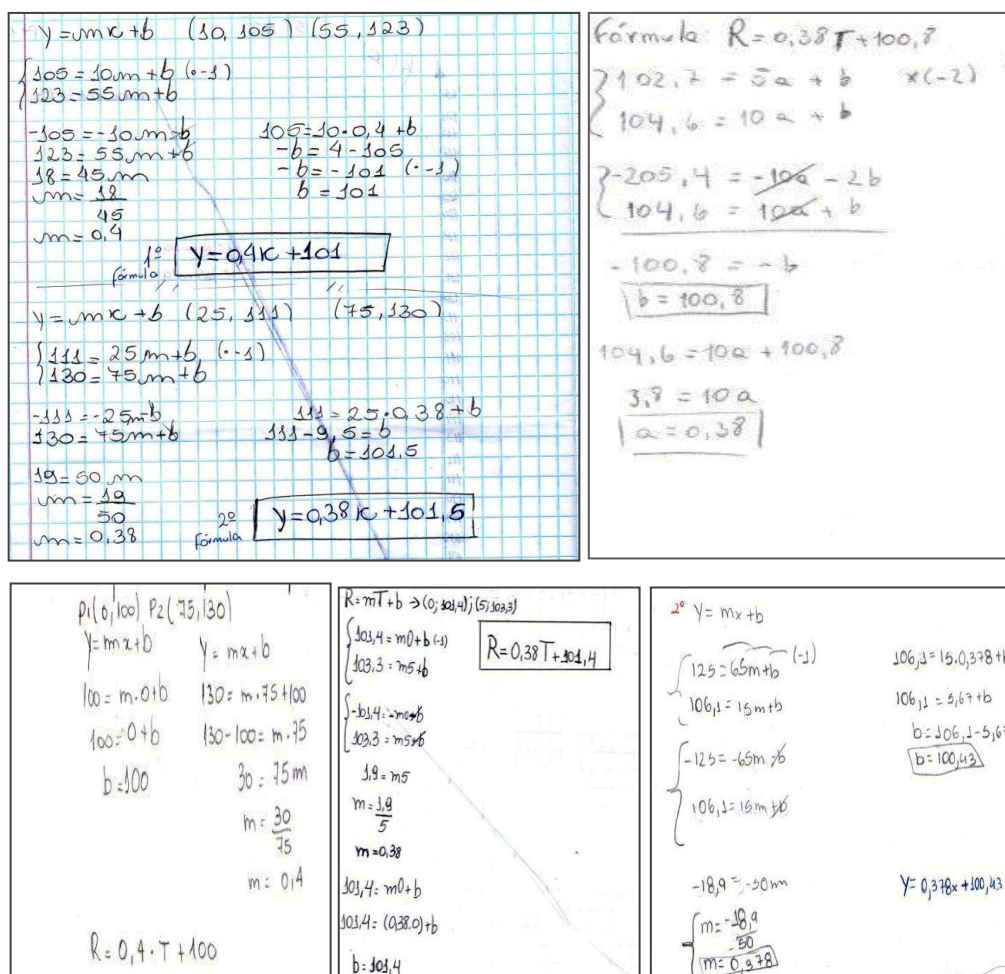 y=mx+b (10, 105) (55, 123)
105=10m+b (·-1)
123=55m+b
-105=-10m-b
123=55m+b
18=45m
m=18/45
m=0,4
105=10·0,4+b
-b=4-105
-b=-101 (·-1)
b=101
1º fórmula
y=0,4x+101
y=mx+b (25, 111) (75, 130)
111=25m+b (·-1)
130=75m+b
-111=-25m-b
130=75m+b
19=50m
m=19/50
m=0,38
111=25·0,38+b
111-9,5=b
b=101,5
2º fórmula
y=0,38x+101,5
Fórmula R=0,38T+100,8
102,7 = 5a + b x(-2)
104,6 = 10a + b
-205,4 = -10a - 2b
104,6 = 10a + b
-100,8 = -b
b=100,8
104,6=10a+100,8
3,8 = 10a
a=0,38
P1(0,100) P2(75,130)
y=mx+b
100=m.0+b
100=0+b
b=100
y=mx+b
130=m.75+100
130-100=m.75
30=75m
m=30/75
m=0,4
R=0,4·T+100
R=mT+b → (0;101,4);(5;103,3)
101,4=m0+b(-1)
103,3=m5+b
R=0,38T+101,4
-101,4=-m0-b
103,3=m5+b
1,9=m5
m=1,9/5
m=0,38
101,4=m0+b
101,4=(0,38.0)+b
b=101,4
2º y=mx+b
125=65m+b (-1)
106,1=15m+b
-125=-65m-b
106,1=15m+b
-18,9=-50m
m=-18,9/-50
m=0,378
106,1=15.0,378+b
106,1=5,67+b
b=106,1-5,67
b=100,43
y=0,378x+100,43